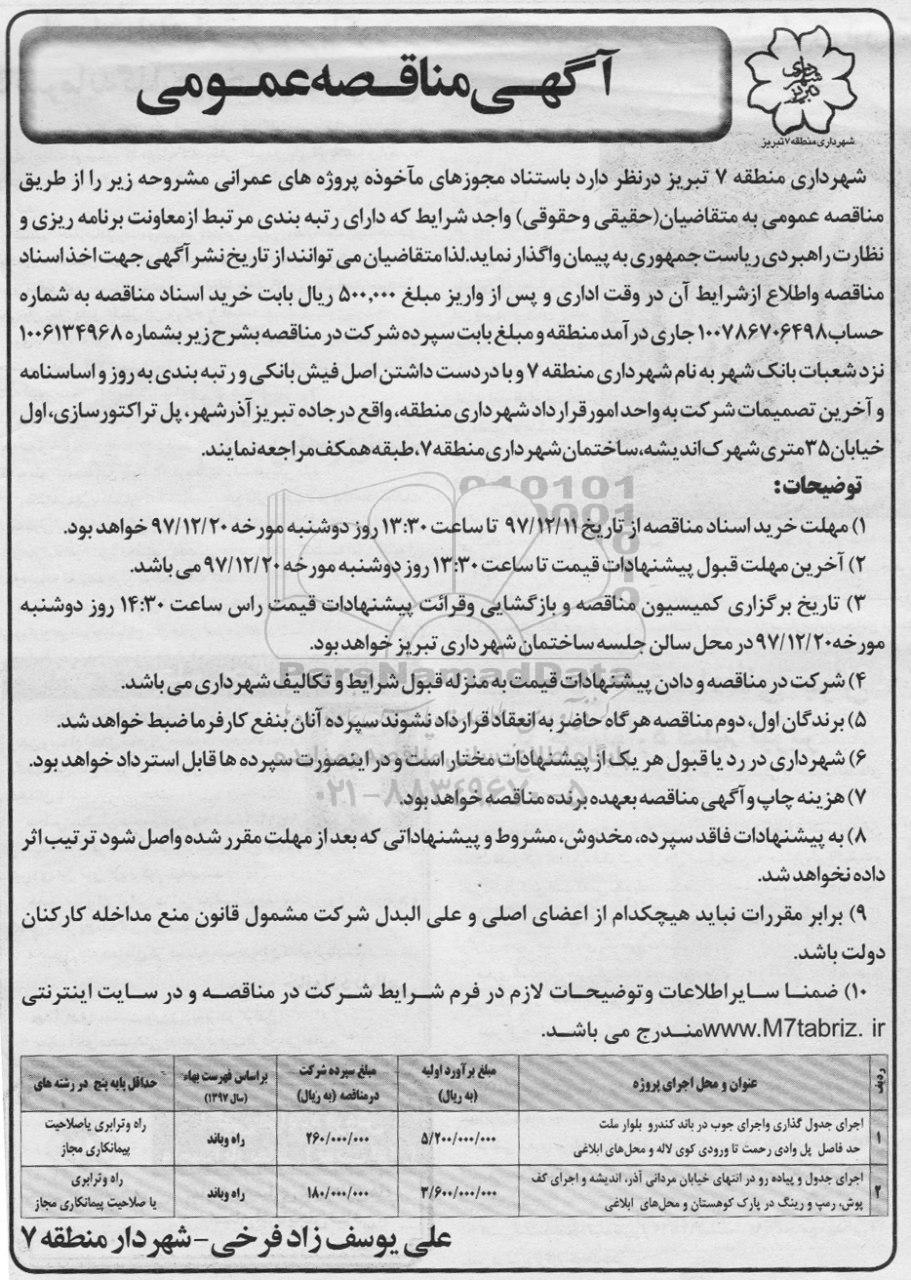 آگهی مناقصه عمومی
شهرداری تبریز
شهرداری منطقه ۷ تبریز
شهرداری منطقه ۷ تبریز درنظر دارد باستناد مجوزهای مآخوذه پروژه های عمرانی مشروحه زیر را از طریق
مناقصه عمومی به متقاضیان(حقیقی وحقوقی) واجد شرایط که دارای رتبه بندی مرتبط ازمعاونت برنامه ریزی و
نظارت راهبردی ریاست جمهوری به پیمان واگذار نماید.لذا متقاضیان می توانند از تاریخ نشر آگهی جهت اخذ اسناد
مناقصه واطلاع ازشرایط آن در وقت اداری و پس از واریز مبلغ ۵۰۰,۰۰۰ ریال بابت خرید اسناد مناقصه به شماره
حساب۱۰۰۷۸۶۷۰۶۴۹۸ جاری درآمد منطقه و مبلغ بابت سپرده شرکت در مناقصه بشرح زیر بشماره ۱۰۰۶۱۳۴۹۶۸
نزد شعبات بانک شهر به نام شهرداری منطقه ۷ و با در دست داشتن اصل فیش بانکی و رتبه بندی به روز و اساسنامه
و آخرین تصمیمات شرکت به واحد امور قرارداد شهرداری منطقه، واقع در جاده تبریز آذرشهر، پل تراکتورسازی، اول
خیابان ۳۵متری شهرک اندیشه، ساختمان شهرداری منطقه ۷، طبقه همکف مراجعه نمایند.
توضیحات:
۱) مهلت خرید اسناد مناقصه از تاریخ ۹۷/۱۲/۱۱ تا ساعت ۱۳:۳۰ روز دوشنبه مورخه ۹۷/۱۲/۲۰ خواهد بود.
۲) آخرین مهلت قبول پیشنهادات قیمت تا ساعت ۱۳:۳۰ روز دوشنبه مورخه ۹۷/۱۲/۲۰ می باشد.
۳) تاریخ برگزاری کمیسیون مناقصه و بازگشایی وقرائت پیشنهادات قیمت راس ساعت ۱۴:۳۰ روز دوشنبه
مورخه۹۷/۱۲/۲۰ در محل سالن جلسه ساختمان شهرداری تبریز خواهد بود.
۴) شرکت در مناقصه و دادن پیشنهادات قیمت به منزله قبول شرایط و تکالیف شهرداری می باشد.
۵) برندگان اول، دوم مناقصه هر گاه حاضر به انعقاد قرارداد نشوند سپرده آنان بنفع کارفرما ضبط خواهد شد.
۶) شهرداری در رد یا قبول هر یک از پیشنهادات مختار است و در اینصورت سپرده ها قابل استرداد خواهد بود.
۷) هزینه چاپ و آگهی مناقصه بعهده برنده مناقصه خواهد بود.
۸) به پیشنهادات فاقد سپرده، مخدوش، مشروط و پیشنهاداتی که بعد از مهلت مقرر شده واصل شود ترتیب اثر
داده نخواهد شد.
۹) برابر مقررات نباید هیچکدام از اعضای اصلی و علی البدل شرکت مشمول قانون منع مداخله کارکنان
دولت باشد.
۱۰) ضمنا سایراطلاعات وتوضیحات لازم در فرم شرایط شرکت در مناقصه و در سایت اینترنتی
www.M7tabriz. ir مندرج می باشد.
ParsNamadData
۰۲۱-۸۸۳۴۹۶۷۰-۵
ردیف | عنوان و محل اجرای پروژه | مبلغ برآورد اولیه (به ریال) | مبلغ سپرده شرکت درمناقصه (به ریال) | براساس فهرست بهاء (سال ۱۳۹۷) | حداقل پایه پنج در رشته های
۱ | اجرای جدول گذاری واجرای جوب در باند کندرو بلوار ملت حد فاصل پل وادی رحمت تا ورودی کوی لاله و محل‌های ابلاغی | ۵/۲۰۰/۰۰۰/۰۰۰ | ۲۶۰/۰۰۰/۰۰۰ | راه وباند | راه وترابری یاصلاحیت پیمانکاری مجاز
۲ | اجرای جدول و پیاده رو در انتهای خیابان مردانی آذر، اندیشه و اجرای کف پوش، رمپ و رینگ در پارک کوهستان و محل‌های ابلاغی | ۳/۶۰۰/۰۰۰/۰۰۰ | ۱۸۰/۰۰۰/۰۰۰ | راه وباند | راه وترابری یا صلاحیت پیمانکاری مجاز
علی یوسف زاد فرخی -شهردار منطقه ۷